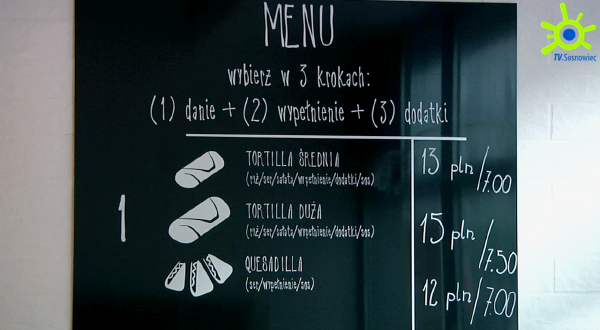 MENU
wybierz w 3 krokach:
(1) danie + (2) wypełnienie + (3) dodatki
TORTILLA ŚREDNIA 13 pln/7.00
(ryż/ser/sałata/wypełnienie/dodatki/sos)
1
TORTILLA DUŻA 15 pln/7.50
(ryż/ser/sałata/wypełnienie/dodatki/sos)
QUESADILLA 12 pln/7.00
(ser/wypełnienie/sos)
TV.Sosnowiec